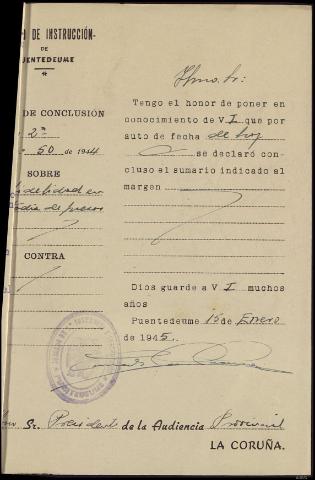 DE INSTRUCCIÓN
DE
PUENTEDEUME
DE CONCLUSIÓN
2ª
50 de 1944
SOBRE
CONTRA
Ilmo. Sr:
Tengo el honor de poner en
conocimiento de V I que por
auto de fecha de hoy
se declaró con-
cluso el sumario indicado al
margen
Dios guarde a V I muchos
años
Puentedeume 15 de Enero
de 1945.
Sr. Presidente de la Audiencia Provincial
LA CORUÑA.